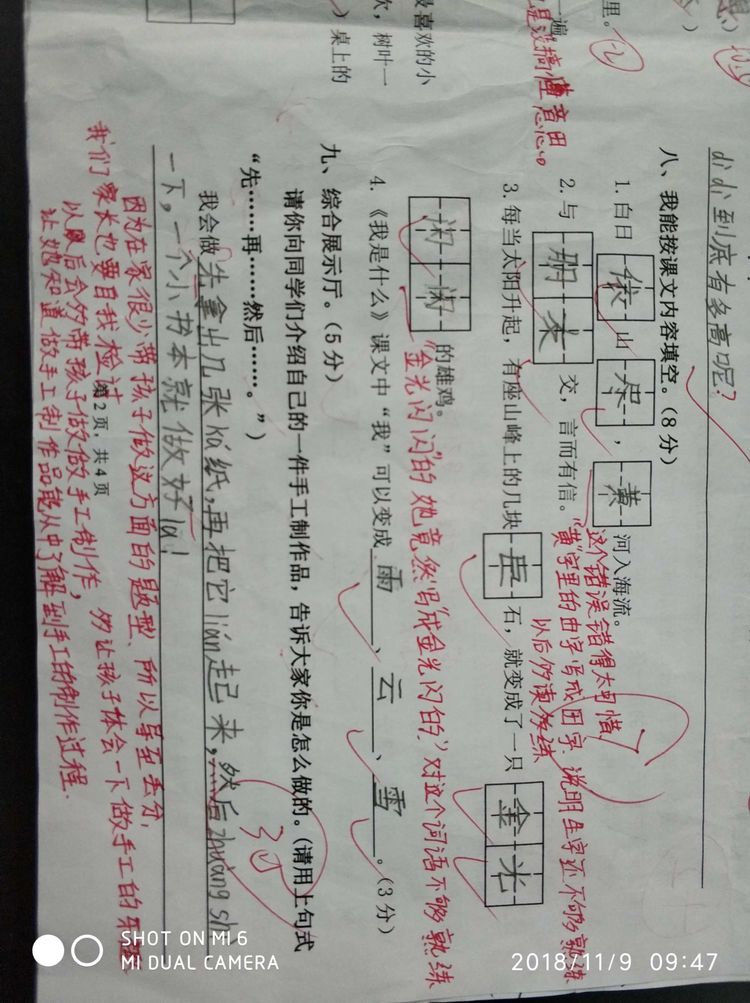 didi到底有多高呢？
八、我能按课文内容填空。(8分)
1. 白日依山尽，黄河入海流。
这个错误错得太可惜
"黄"字里的由字写成田字，说明生字还不够熟练
以后多读多练
2. 与朋友交，言而有信。
3. 每当太阳升起，有座山峰上的几块巨石，就变成了一只金光
闪闪的雄鸡。
"金光闪闪"的她竟然写成金光闪的"，对这个词语不够熟练
4. 《我是什么》课文中“我”可以变成雨、云、雪。(3分)
九、综合展示厅。(5分)
请你向同学们介绍自己的一件手工制作品，告诉大家你是怎么做的。(请用上句式
“先……再……然后……。”)
我会做先拿出几张kǎ纸，再把它lián起来，然后zhuāng
一下，一个小书本就做好la！
因为在家很少带孩子做这方面的题型、所以导至丢分，
我们家长也要自我检讨
第2页，共4页
以后会多带孩子做做手工制作，多让孩子体会一下做手工的
让她知道做手工制作品能从中了解到手工的制作过程.
里。
一遍
是没搞懂意思。
最喜欢的小
次，树叶一
)桌上的
SHOT ON MI 6
MI DUAL CAMERA
2018/11/9 09:47